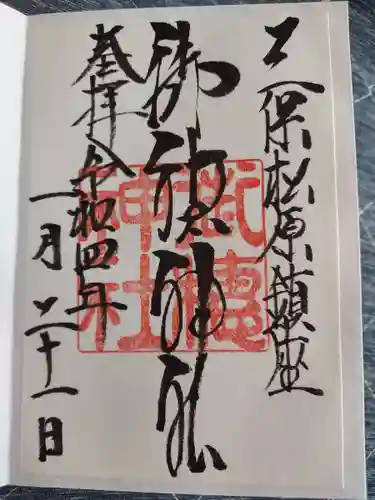 三保松原鎮座
御穂神社
奉拝 令和四年
一月二十一日
御穗神社